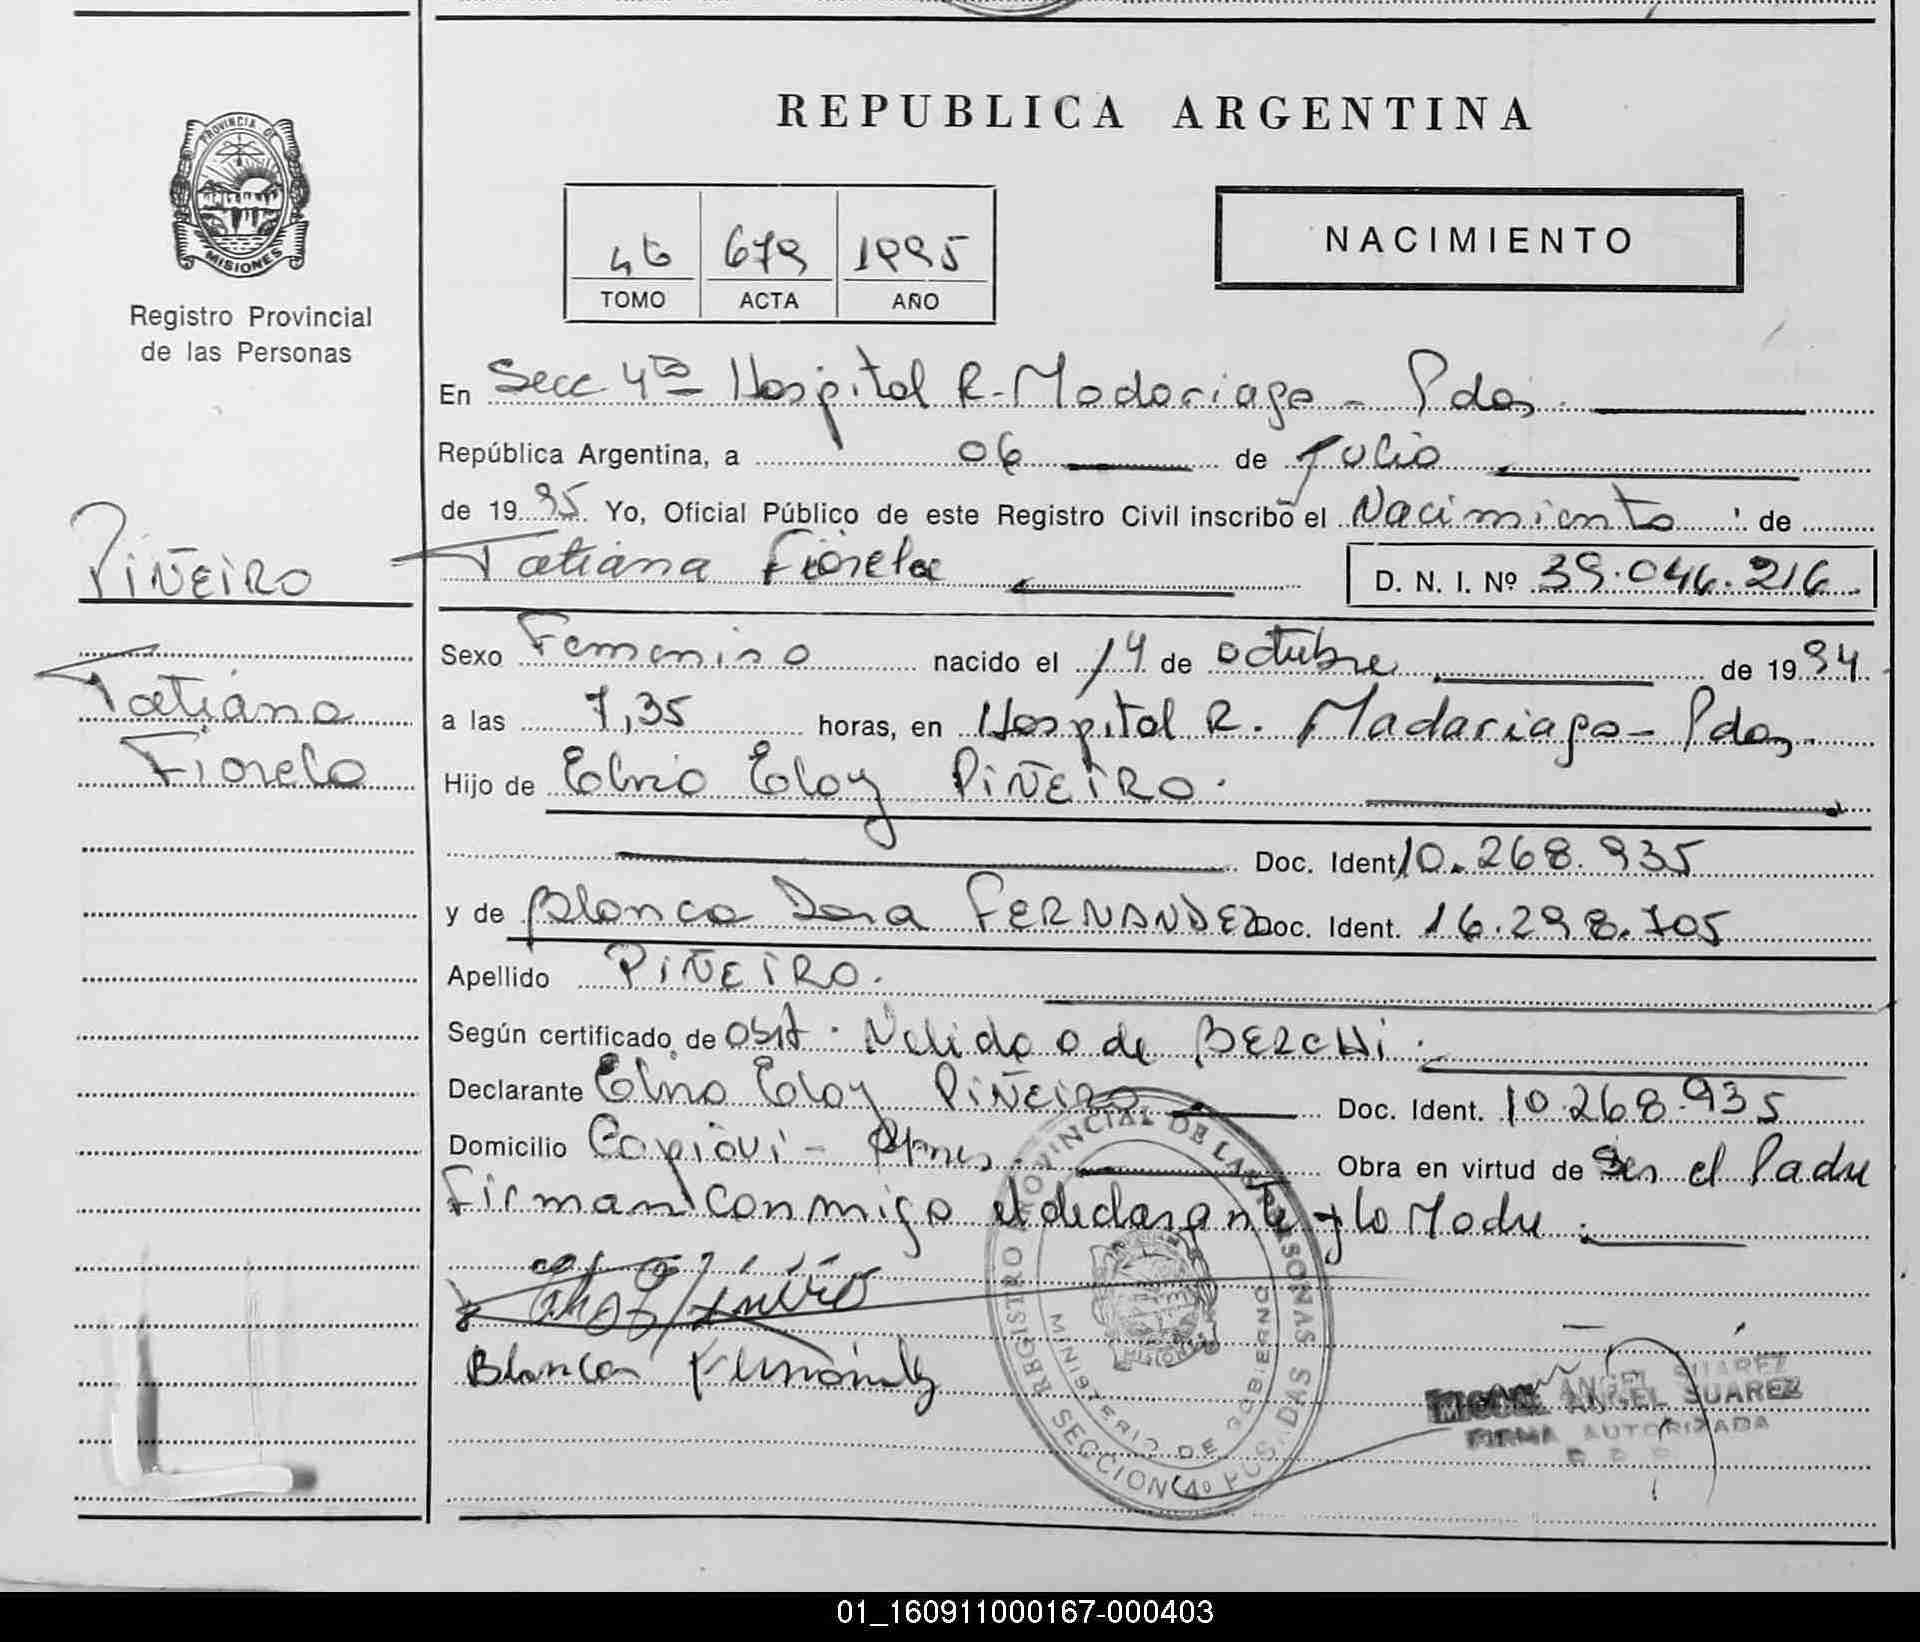 REPUBLICA ARGENTINA
PROVINCIA DE
MISIONES
Registro Provincial
de las Personas
4b 679 1995
TOMO ACTA AÑO
NACIMIENTO
En Secc 4ta Hospital R. Madariaga - Pdas.
República Argentina, a 06 de Julio
de 1995 Yo, Oficial Público de este Registro Civil inscribo el Nacimiento de
Tatiana Fiorela D. N. I. Nº 39.046.216
PIÑEIRO
Tatiana
Fiorela
Sexo Femenino nacido el 14 de octubre de 1994
a las 7,35 horas, en Hospital R. Madariaga - Pdas
Hijo de Elvio Eloy PIÑEIRO.
Doc. Ident 10.268.935
y de Blanca Dora FERNANDEZ Doc. Ident. 16.298.705
Apellido PIÑEIRO.
Según certificado de Obst. Nelida O de BERCHI.
Declarante Elvio Eloy PIÑEIRO Doc. Ident. 10.268.935
Domicilio Capiovi - Mnes. Obra en virtud de Ser el Padre
Firman conmigo el declarante y la Madre.
Blanca Fernández
REGISTRO PROVINCIAL DE LAS PERSONAS
MINISTERIO DE GOBIERNO
SECCION 4º POSADAS
MIGUEL ANGEL SUAREZ
FIRMA AUTORIZADA
01_160911000167-000403